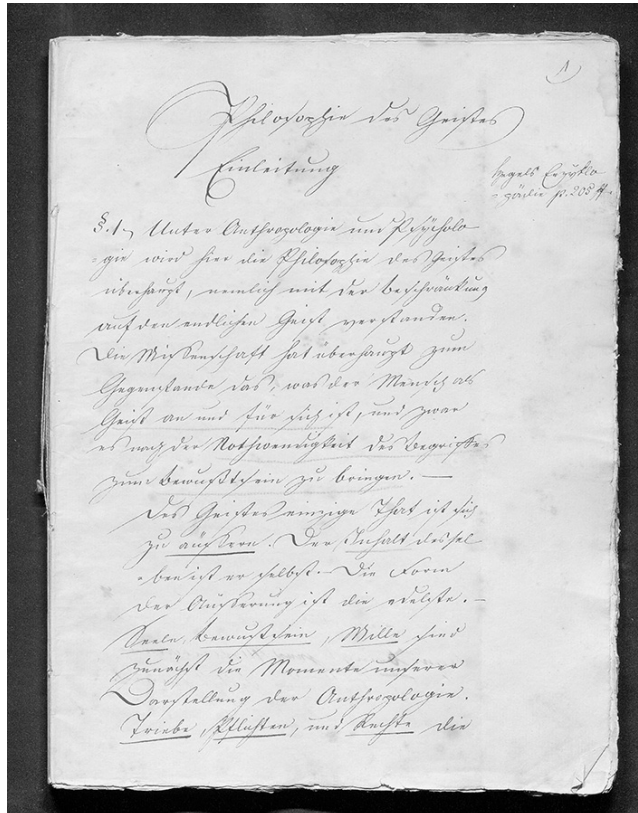 1
Philosophie des Geistes
Einleitung
Hegels Enzyklo-
pädie p. 205 ff.
§. 1. Unter Anthropologie und Psycholo-
gie wird hier die Philosophie des Geistes
überhaupt, nemlich mit der Beschränkung
auf den endlichen Geist verstanden.
Die Wissenschaft hat überhaupt zum
Gegenstande das, was der Mensch als
Geist an und für sich ist, und zwar
es nach der Nothwendigkeit des Begriffes
zum Bewußtsein zu bringen. —
Des Geistes einzige That ist sich
zu äussern. Der Inhalt dessel-
ben ist er selbst. Die Form
der Äusserung ist die —
Seele, Bewustsein, Wille sind
zunächst die Momente unserer
Darstellung der Anthropologie.
Triebe, Pflichten, und Rechte die